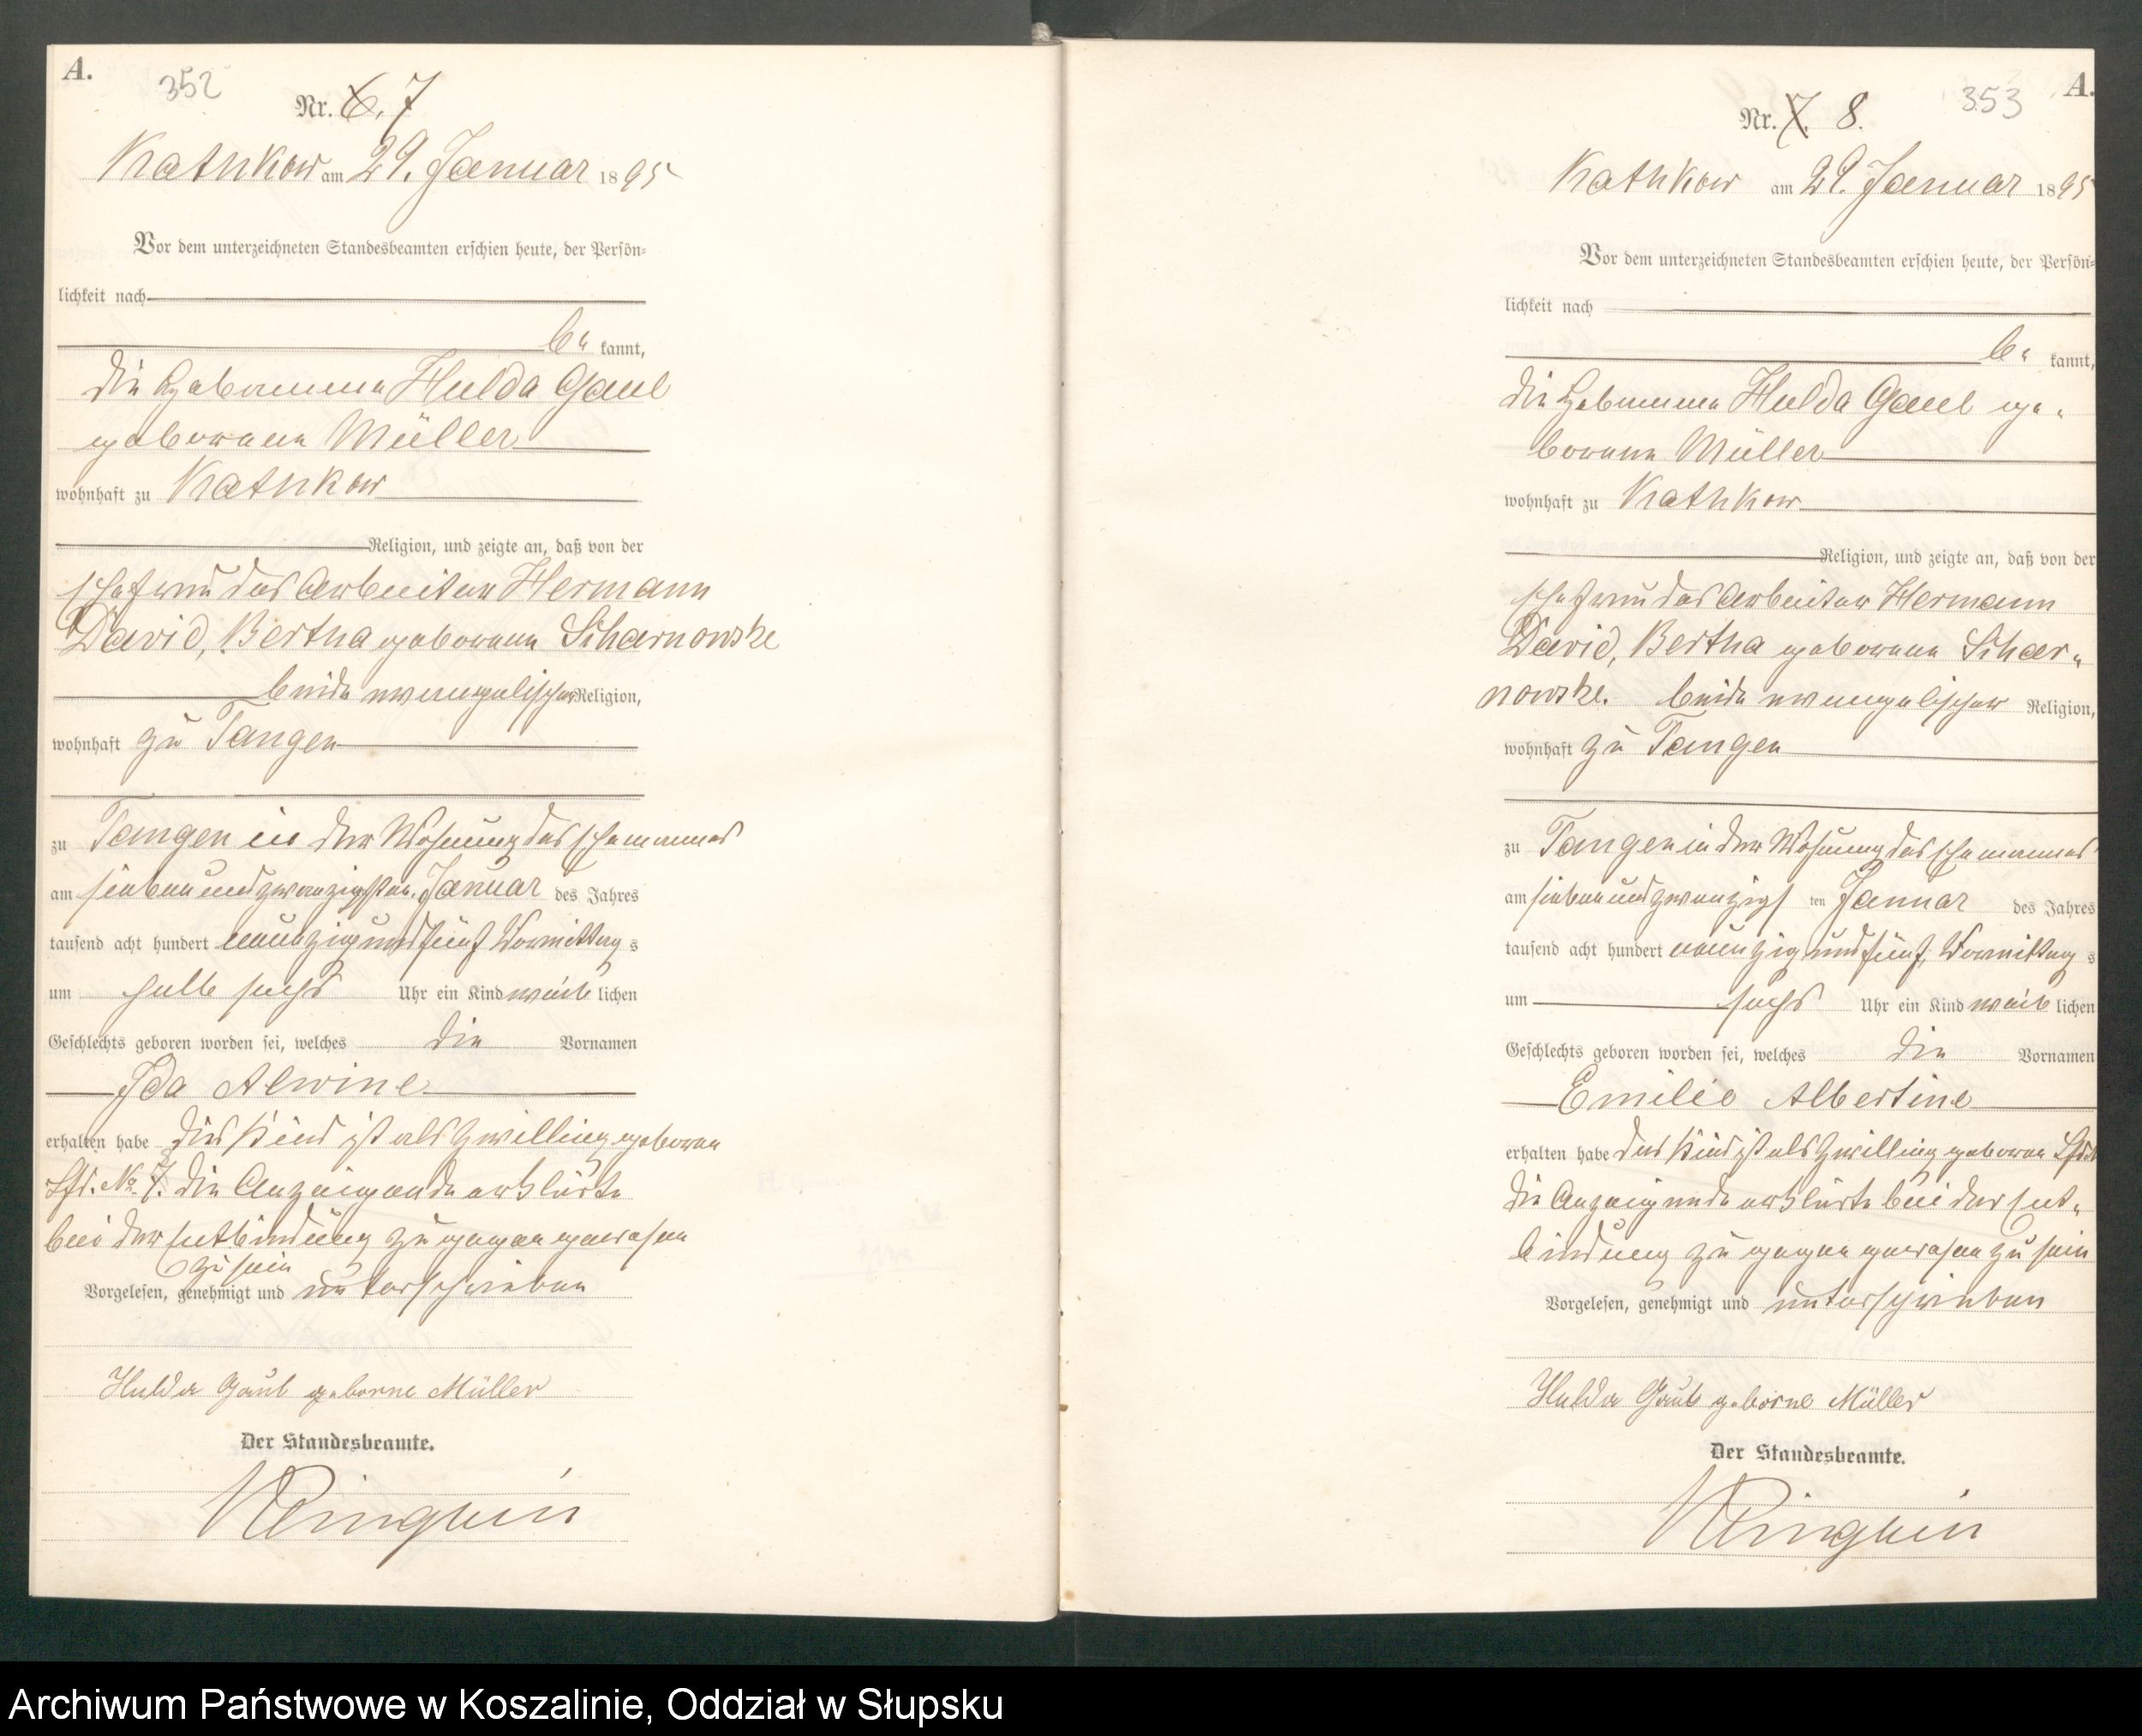 A.
352
Nr. 6. 7
Kathkow am 29. Januar 1895
Vor dem unterzeichneten Standesbeamten erschien heute, der Persön-
lichkeit nach
be kannt,
die Hebamme Hulda Gaul
geborene Müller
wohnhaft zu Kathkow
Religion, und zeigte an, daß von der
Ehefrau des Arbeiters Hermann
David, Bertha geborene Scharnowske
beide evangelischer Religion,
wohnhaft zu Tangen
zu Tangen in der Wohnung des Ehemannes
am siebenundzwanzigsten Januar des Jahres
tausend acht hundert neunzig und fünf Vormittag s
um halb sechs Uhr ein Kind weib lichen
Geschlechts geboren worden sei, welches die Vornamen
Ida Alwine
erhalten habe Dies Kind ist als Zwilling geboren
Lfd. No. 7. Die Anzeigende erklärte
bei der Entbindung zugegen gewesen
zu sein
Vorgelesen, genehmigt und unterschrieben
Hulda Gaul geborne Müller
Der Standesbeamte.
A.
353
Nr. 7. 8.
Kathkow am 29. Januar 1895
Vor dem unterzeichneten Standesbeamten erschien heute, der Persön-
lichkeit nach
be kannt,
die Hebamme Hulda Gaul ge-
borene Müller
wohnhaft zu Kathkow
Religion, und zeigte an, daß von der
Ehefrau des Arbeiters Hermann
David, Bertha geborene Schar-
nowske. beide evangelischer Religion,
wohnhaft zu Tangen
zu Tangen in der Wohnung des Ehemannes
am siebenundzwanzigs ten Januar des Jahres
tausend acht hundert neunzig und fünf, Vormittag s
um sechs Uhr ein Kind weib lichen
Geschlechts geboren worden sei, welches die Vornamen
Emilie Albertine
erhalten habe Das Kind ist als Zwilling geboren
Die Anzeigende erklärte bei der Ent-
bindung zugegen gewesen zu sein
Vorgelesen, genehmigt und unterschrieben
Hulda Gaul geborne Müller
Der Standesbeamte.
Archiwum Państwowe w Koszalinie, Oddział w Słupsku